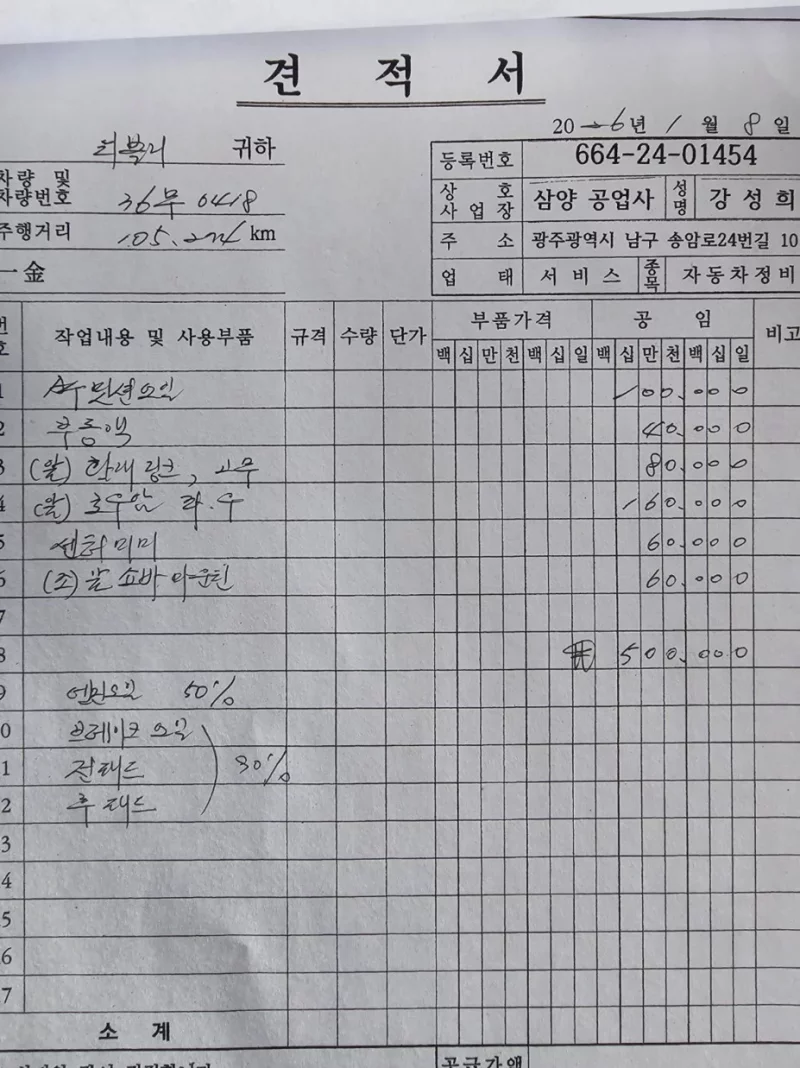 견 적 서
20 26년 1 월 8 일
귀하
차량 및
차량번호 36무 0418
주행거리 105.274 km
一金
등록번호 664-24-01454
상 호
사 업 장 삼양 공업사 성명 강 성 희
주 소 광주광역시 남구 송암로24번길 10
업 태 서 비 스 종목 자동차정비
번호 작업내용 및 사용부품 규격 수량 단가 부품가격 공 임 비고
백 십 만 천 백 십 일 백 십 만 천 백 십 일
1 밋션오일 100.000
2 부동액 40.000
3 (앞) 활대링크, 고무 80.000
4 (앞) 로우암 좌.우 160.000
5 센터 미미 60.000
6 (조) 앞 쇼바 마운틴 60.000
7
8 ₩ 500.000
9 엔진오일 50%
10 브레이크 오일
11 전패드 30%
12 후 패드
3
4
5
6
7
소 계
공급가액